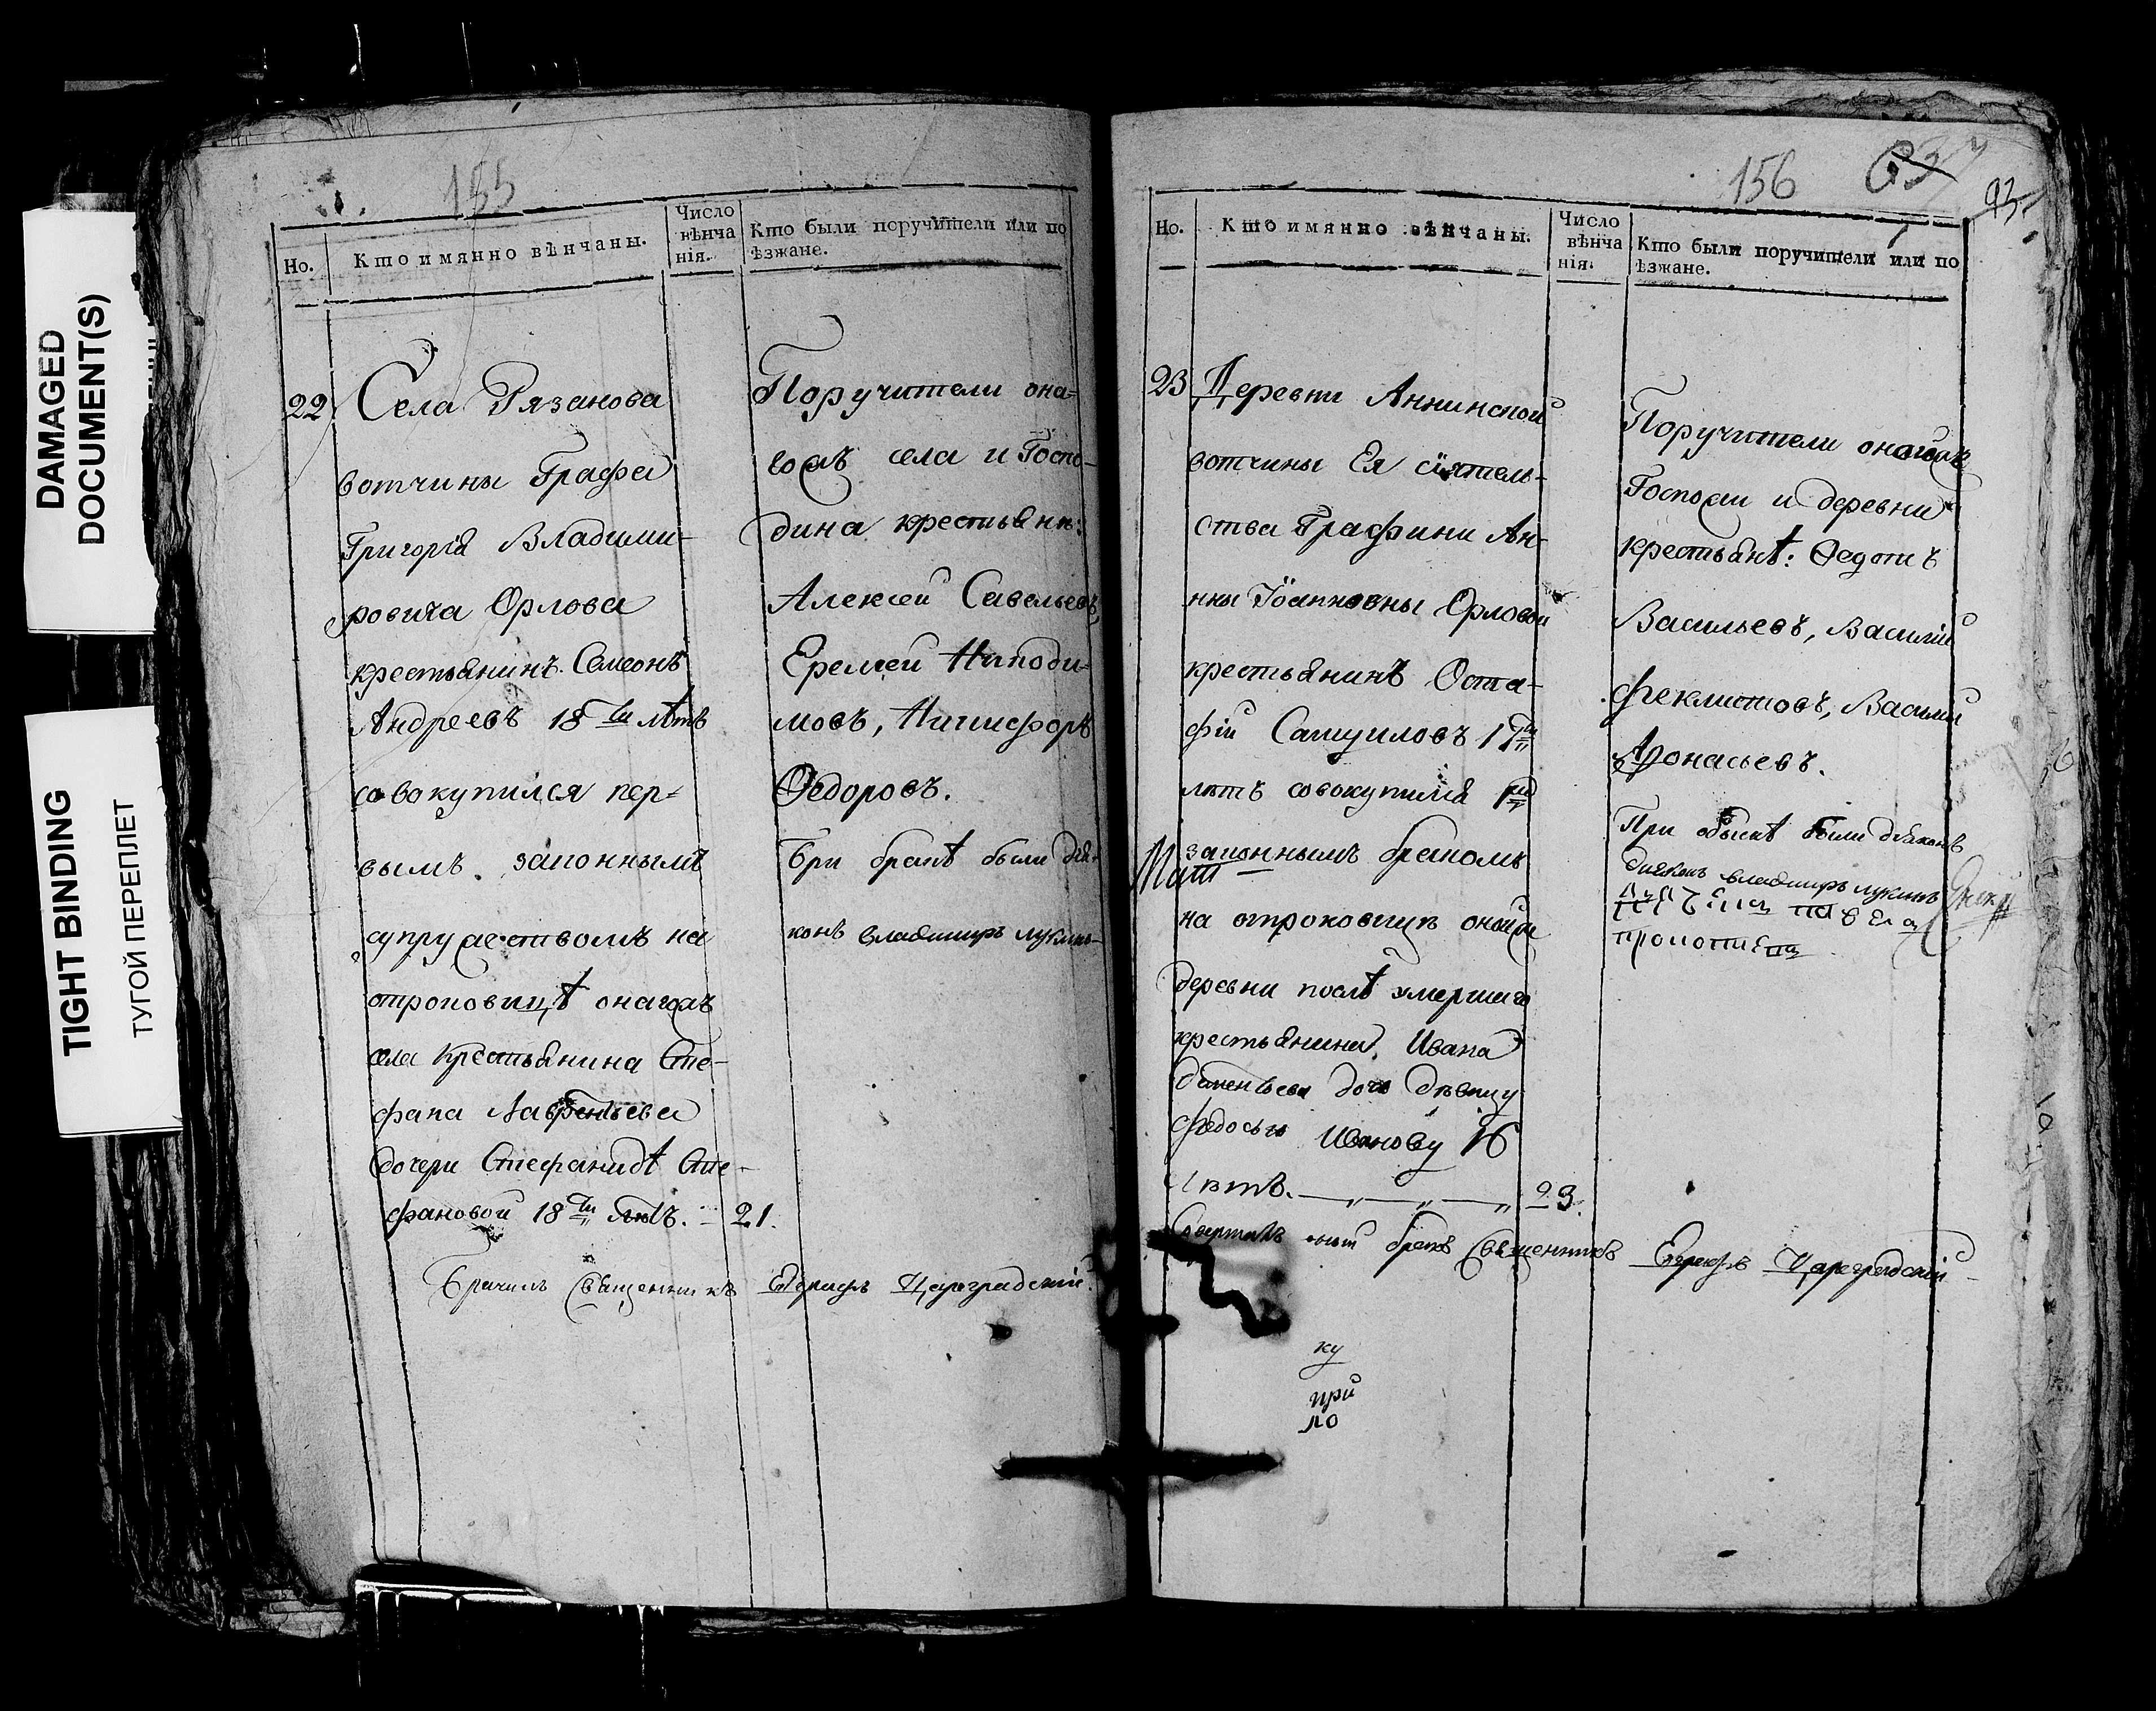 DAMAGED
DOCUMENT(S)
TIGHT BINDING
ТУГОЙ ПЕРЕПЛЕТ
155
Но.
Кто имянно вѣнчаны.
Число
вѣнча
нія.
Кто были поручители или по
ѣзжане.
22
Села Рязанова
вотчины Графа
Григорія Владими-
ровича Орлова
крестьянинъ Симеонъ
Андреевъ 18ти лѣтъ
совокупился пер-
вымъ законнымъ
супружествомъ на
отроковицѣ онагожъ
села крестьянина Сте-
фана Лаврентьева
дочери Стефанидѣ Сте-
фановой 18ти лѣтъ. 21.
Поручители она-
гожъ села и Госпо-
дина крестьяне:
Алексей Савельевъ,
Еремей Никоди-
мовъ, Никифоръ
Ѳедоровъ.
При бракѣ были дья-
конъ Владимиръ Лукинъ
Брачилъ священникъ Евграфъ Цареградский.
156
93
Но.
Кто имянно вѣнчаны.
Число
вѣнча
нія.
Кто были поручители или по
ѣзжане.
23
Деревни Аннинской
вотчины Ея сіятель-
ства Графини Ан-
ны Іоанновны Орловой
крестьянинъ Оста-
фій Самуиловъ 17ти
лѣтъ совокупился
законнымъ бракомъ
на отроковицѣ онойже
деревни послѣ умершаго
крестьянина Ивана
дочь дѣвицу
Федосью Иванову 16
лѣтъ. 23.
Поручители онагожъ
Госпожи и деревни
крестьянѣ: Ѳедотъ
Васильевъ, Василій
Феклистовъ, Василій
Афонасьевъ.
При были
дьяконъ Владимиръ Лукинъ
бракъ священникъ Евграфъ Цареградский
ку
при
ло